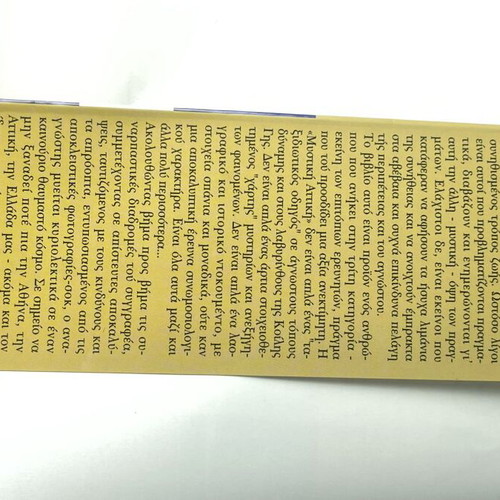 είναι αυτοί που προβληματίζονται πραγμα-
τικά, διαβάζουν και ενημερώνονται γι'
αυτή την άλλη - μυστική - όψη των πραγ-
μάτων. Ελάχιστοι δε, είναι εκείνοι που
κατάφεραν να αφήσουν τα ήσυχα λιμάνια
της συνήθειας και να ανοιχτούν έμπρακτα
στα αβέβαια και συχνά επικίνδυνα πελάγη
της περιπέτειας και του αγνώστου.
Το βιβλίο αυτό είναι προϊόν ενός ανθρώ-
που που ανήκει στην τρίτη κατηγορία -
εκείνη των επιτόπιων ερευνητών, πράγμα
που του προσδίδει μια αξία ανεκτίμητη. Η
«Μυστική Αττική» δεν είναι απλά ένας "τα-
ξιδιωτικός οδηγός" σε άγνωστους τόπους
δύναμης και στους λαβυρίνθους της Κοίλης
Γης. Δεν είναι απλά ένας άρτια στοιχειοθε-
τημένος "χάρτης" μυστηρίων και ανεξήγη-
των φαινομένων. Δεν είναι απλά ένα λαο-
γραφικό και ιστορικό ντοκουμέντο, με
στοιχεία σπάνια και μοναδικά, ούτε καν
μια αποκαλυπτική έρευνα συνωμοσιολογι-
κού χαρακτήρα. Είναι όλα αυτά μαζί και
άλλα πολύ περισσότερα...
Ακολουθώντας βήμα προς βήμα τις συ-
ναρπαστικές διαδρομές του συγγραφέα,
συμμετέχοντας σε απίστευτες αποκαλύ-
ψεις, ταυτιζόμενος με τους κινδύνους και
τα απρόοπτα, εντυπωσιασμένος από τις
αποκλειστικές φωτογραφίες-σοκ, ο ανα-
γνώστης μυείται κυριολεκτικά σε έναν
καινούριο θαυμαστό κόσμο. Σε σημείο να
μην ξαναδεί ποτέ πια την Αθήνα, την
Αττική, την Ελλάδα μας - ακόμα και τον